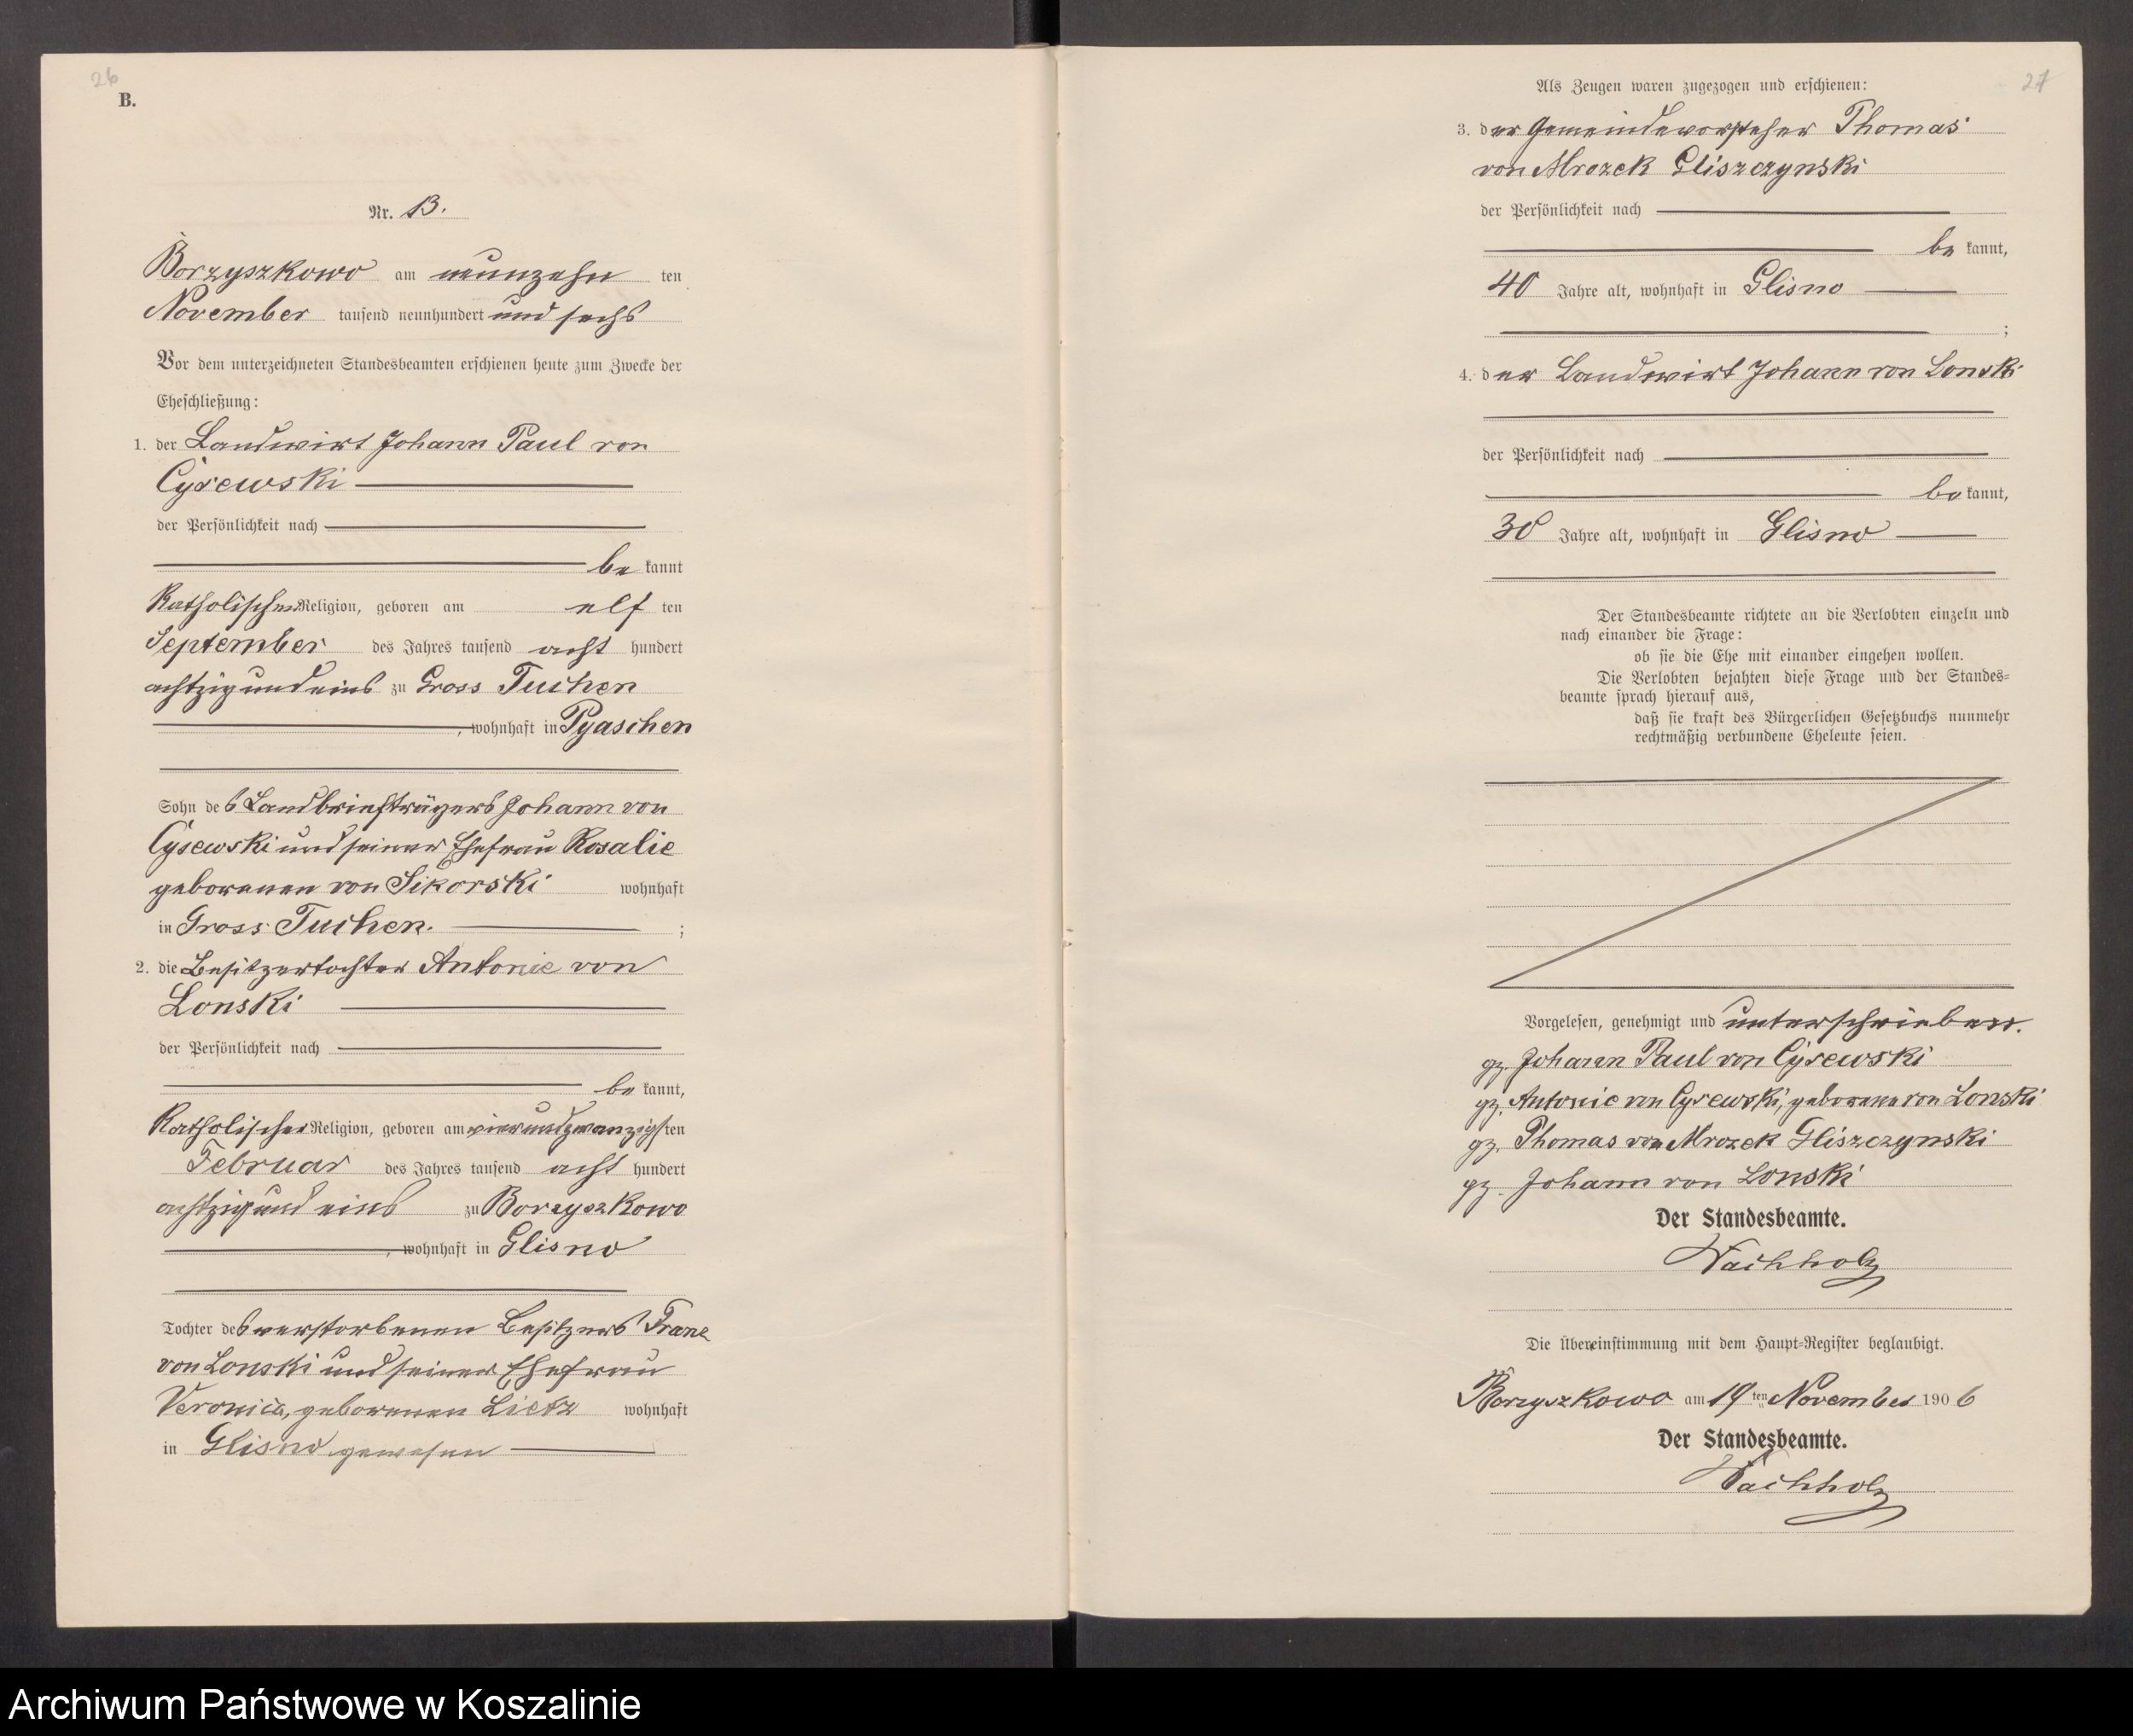 26
B.
Nr. 13.
Borzyszkowo am neunzehn ten
November tausend neunhundert und sechs
Vor dem unterzeichneten Standesbeamten erschienen heute zum Zwecke der
Eheschließung:
1. der Landwirt Johann Paul von
Cysewski
der Persönlichkeit nach
be kannt
Katholischer Religion, geboren am elf ten
September des Jahres tausend acht hundert
achtzig und eins zu Gross Tuchen
, wohnhaft in Pyaschen
Sohn des Landbriefträgers Johann von
Cysewski und seiner Ehefrau Rosalie
geborenen von Sikorski wohnhaft
in Gross Tuchen. ;
2. die Besitzertochter Antonie von
Lonski
der Persönlichkeit nach
be kannt,
Katholischer Religion, geboren am vierundzwanzigsten
Februar des Jahres tausend acht hundert
achtzig und eins zu Borzyszkowo
, wohnhaft in Glisno
Tochter des verstorbenen Besitzers Franz
von Lonski und seiner Ehefrau
Veronica, geborenen Lietz wohnhaft
in Glisno gewesen
27
Als Zeugen waren zugezogen und erschienen:
3. der Gemeindevorsteher Thomas
von Mrozek Gliszczynski
der Persönlichkeit nach
be kannt,
40 Jahre alt, wohnhaft in Glisno
;
4. der Landwirt Johann von Lonski
der Persönlichkeit nach
be kannt,
30 Jahre alt, wohnhaft in Glisno
Der Standesbeamte richtete an die Verlobten einzeln und
nach einander die Frage:
ob sie die Ehe mit einander eingehen wollen.
Die Verlobten bejahten diese Frage und der Standes-
beamte sprach hierauf aus,
daß sie kraft des Bürgerlichen Gesetzbuchs nunmehr
rechtmäßig verbundene Eheleute seien.
Vorgelesen, genehmigt und unterschrieben.
gz. Johann Paul von Cysewski
gz. Antonie von Cysewski, geborene von Lonski
gz. Thomas von Mrozek Gliszczynski
gz. Johann von Lonski
Der Standesbeamte.
Wachholz
Die Übereinstimmung mit dem Haupt-Register beglaubigt.
Borzyszkowo am 19 ten November 1906
Der Standesbeamte.
Wachholz
Archiwum Państwowe w Koszalinie